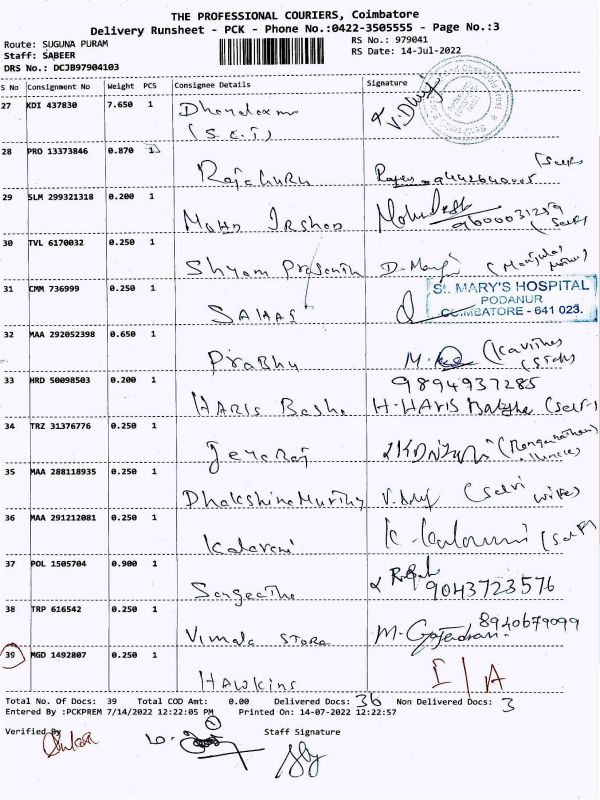 THE PROFESSIONAL COURIERS, Coimbatore
Delivery Runsheet - PCK - Phone No.:0422-3505555 - Page No.:3
Route: SUGUNA PURAM
RS No.: 979041
Staff: SABEER
RS Date: 14-Jul-2022
DRS No.: DCJB97904103
S No Consignment No Weight PCS Consignee Details Signature
27 KDI 437830 7.650 1
(S.C.T)
28 PRO 13373846 0.870 1
Rajaguru
(Self)
29 SLM 299321318 0.200 1
Mohd Irshad
9600031259
(Self)
30 TVL 6170032 0.250 1
Shyam Prasanth
31 CMM 736999 0.250 1
SAHAS
St. MARY'S HOSPITAL
PODANUR
COIMBATORE - 641 023.
32 MAA 292052398 0.650 1
Prabhu
33 HRD 50098503 0.200 1
9894937285
HARIS Basha H-HARIS (Self)
34 TRZ 31376776 0.250 1
Jeyaraj
35 MAA 288118935 0.250 1
Dhakshina Murthy (Selvi
wife)
36 MAA 291212081 0.250 1
Kalavani (Self)
37 POL 1505704 0.900 1
Sangeetha 9043723576
38 TRP 616542 0.250 1
8940679099
Vimala STORE M. Gajendran.
39 MGD 1492807 0.250 1
HAWKINS I/A
Total No. Of Docs: 39 Total COD Amt: 0.00 Delivered Docs: 36 Non Delivered Docs: 3
Entered By :PCKPREM 7/14/2022 12:22:05 PM Printed On: 14-07-2022 12:22:57
Verified By Staff Signature